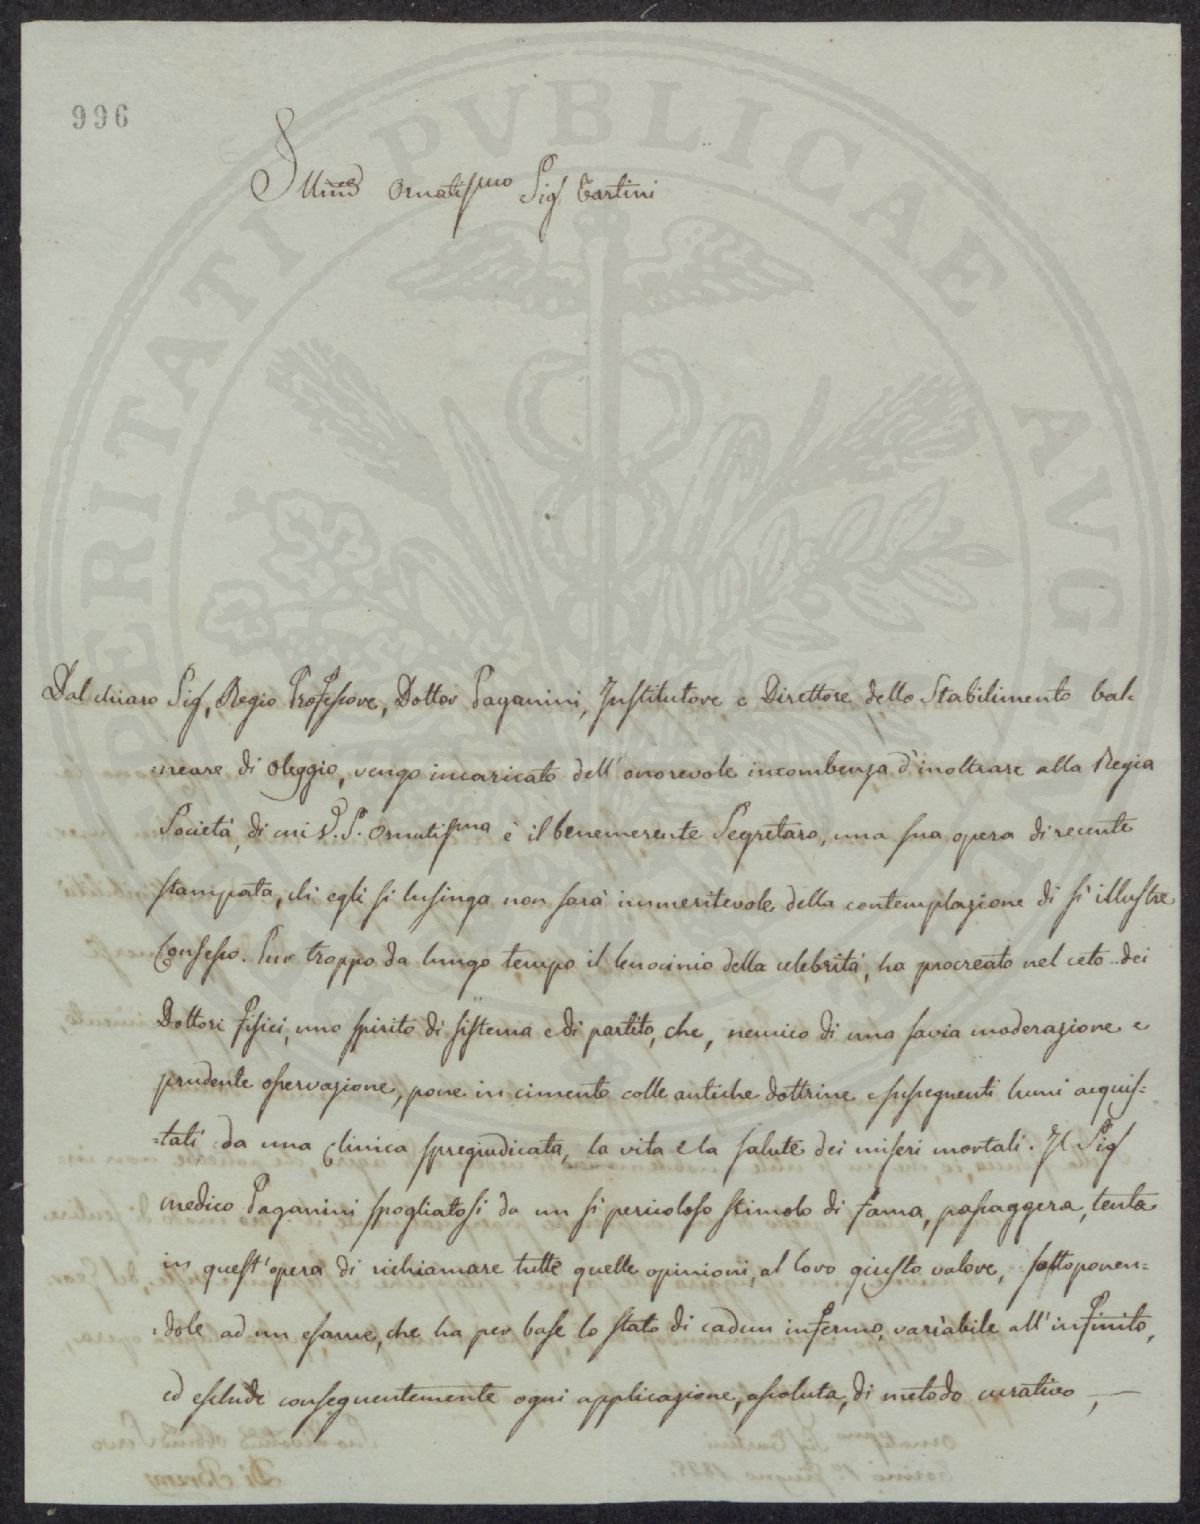 996
Illmo Ornatissmo Sig Tartini
Dal chiaro Sig, Regio Professore, Dottor Paganini, Institutore e Direttore dello Stabilimento bal-
:neare di Oleggio, vengo incaricato dell'onorevole incombenza d'inoltrare alla Regia
Società, di cui V.S. Ornatissma è il benemerente Segretaro, una sua opera di recente
stampata, ch'egli si lusinga non sarà immeritevole della contemplazione di sì illustre
Consesso. Pur troppo da lungo tempo il lenocinio della celebrità, ha procreato nel ceto dei
Dottori fisici, uno spirito di sistema e di partito, che, nemico di una savia moderazione e
prudente osservazione, pone in cimento colle antiche dottrine e susseguenti lumi acquis-
=tati da una clinica spregiudicata, la vita e la salute dei miseri mortali. Il Sig
medico Paganini spogliatosi da un sì pericoloso stimolo di fama, passaggera, tenta
in quest'opera di richiamare tutte quelle opinioni, al loro giusto valore, sottoponen=
:dole ad un esame, che ha per base lo stato di cadun infermo, variabile all'infinito,
ed esclude conseguentemente ogni applicazione, assoluta, di metodo curativo, —
PVBLICAE